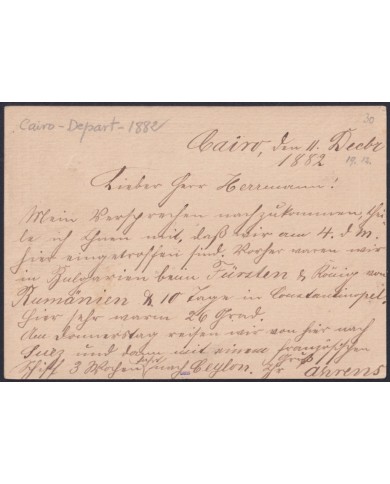 Cairo-Depart-1882
30
Cairo, den 11. Decbr
1882
Lieber Herr Herrmann!
Mein Versprechen nachzukommen, thei-
le ich Ihnen mit, daß wir am 4. d. M.
hier eingetroffen sind. Vorher waren wir
in Bulgarien beim Fürsten & König von
Rumänien & 10 Tage in Constantinpel.
Hier sehr warm 26 Grad.
Am Donnerstag reisen wir von hier nach
Suez und dann mit einem französischen
Schiff 3 Wochen nach Ceylon. Gruß Ihr Ahrens